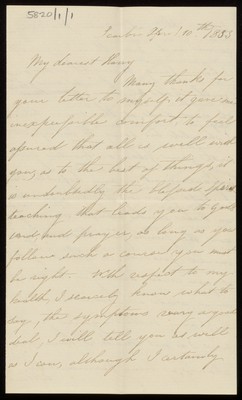 5820/1/1
April 10th/1883
My dearest Harry
Many thanks for
your letter to myself it gave me
inexpressible comfort to feel
assured that all is well and
going on to the best of things, it
is undoubtedly the blessed Spirit
teaching that leads you to God's
word and prayer, as long as you
follow such a course you must
be right – With respect to my
health, I scarcely know what to
say, the symptoms vary a good
deal, I will tell you as well
as I can, although I certainly